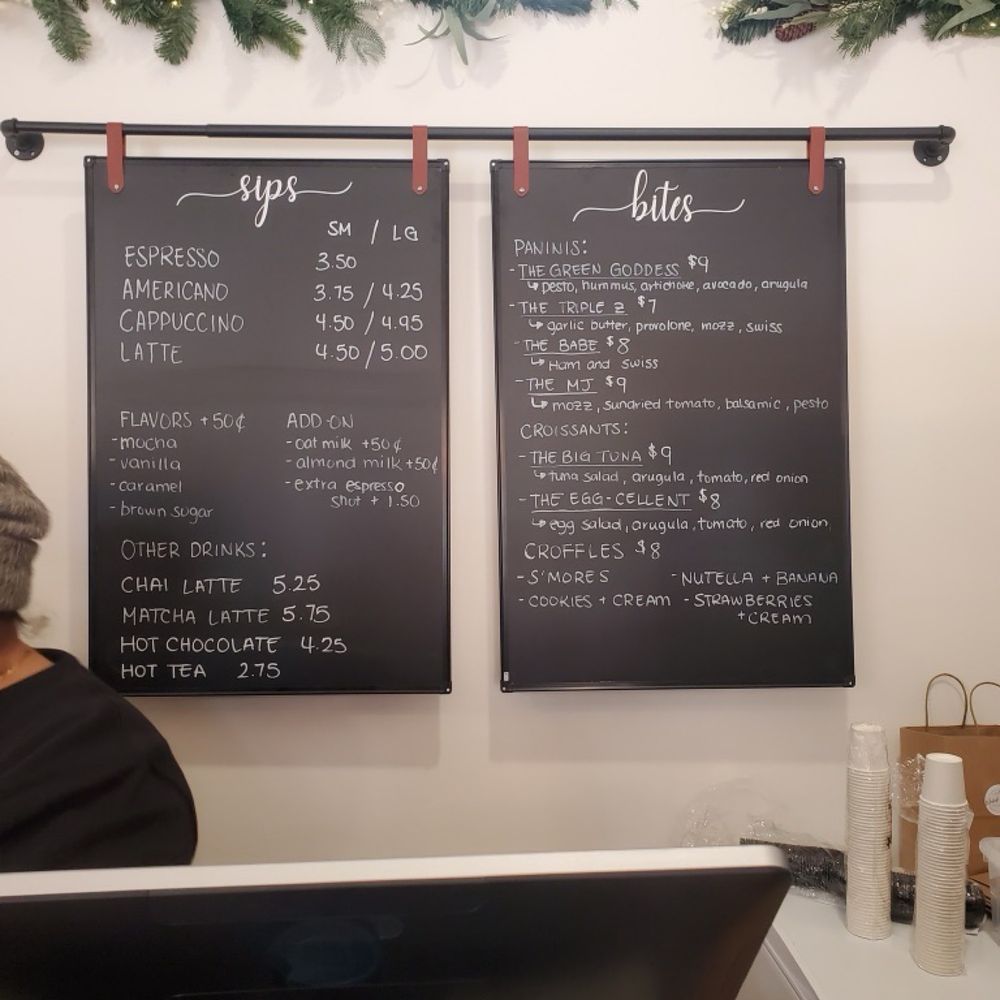 sips
SM / LG
ESPRESSO 3.50
AMERICANO 3.75 / 4.25
CAPPUCCINO 4.50 / 4.95
LATTE 4.50 / 5.00
FLAVORS +50¢
-mocha
-vanilla
-caramel
-brown sugar
ADD-ON
-oat milk +50¢
-almond milk +50¢
-extra espresso
shot + 1.50
OTHER DRINKS:
CHAI LATTE 5.25
MATCHA LATTE 5.75
HOT CHOCOLATE 4.25
HOT TEA 2.75
bites
PANINIS:
-THE GREEN GODDESS $9
↳pesto, hummus, artichoke, avocado, arugula
-THE TRIPLE Z $7
↳garlic butter, provolone, mozz, swiss
-THE BABE $8
↳Ham and swiss
-THE MJ $9
↳mozz, sundried tomato, balsamic, pesto
CROISSANTS:
-THE BIG TUNA $9
↳tuna salad, arugula, tomato, red onion
-THE EGG-CELLENT $8
↳egg salad, arugula, tomato, red onion
CROFFLES $8
-S'MORES -NUTELLA + BANANA
-COOKIES + CREAM -STRAWBERRIES
+CREAM